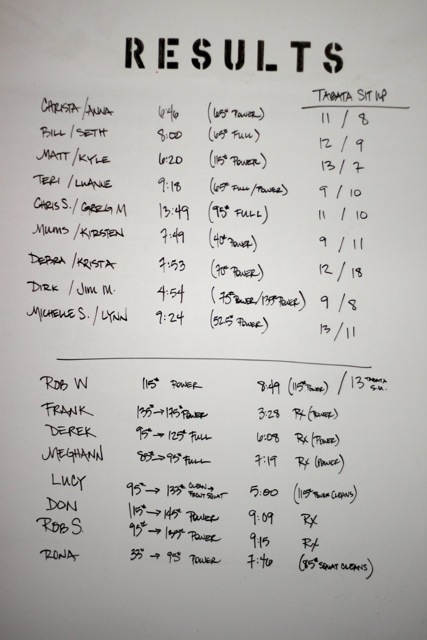 RESULTS
TABATA SIT UP
CHRISTA/ANNA 6:46 (65# POWER) 11 / 8
BILL/SETH 8:00 (65# FULL) 12 / 9
MATT/KYLE 6:20 (115# POWER) 13 / 7
TERI/LUANNE 9:18 (65# FULL/POWER) 9 / 10
CHRIS S./GREG M 13:49 (95# FULL) 11 / 10
MUMS/KIRSTEN 7:49 (40# POWER) 9 / 11
DEBRA/KRISTA 7:53 (70# POWER) 12 / 18
DIRK/JIM M. 4:54 (75# POWER/135# POWER) 9 / 8
MICHELLE S./LYNN 9:24 (52.5# POWER) 13 / 11
ROB W 115# POWER 8:49 (115# POWER) / 13 TABATA S.U.
FRANK 135# → 175# POWER 3:28 RX (POWER)
DEREK 95# → 125# FULL 6:08 RX (POWER)
MEGHANN 85# → 95# FULL 7:19 RX (POWER)
LUCY 95# → 135# CLEAN → FRONT SQUAT 5:00 (115# POWER CLEANS)
DON 115# → 145# POWER 9:09 RX
ROB S. 95# → 135# POWER 9:15 RX
RONA 35# → 95# POWER 7:46 (85# SQUAT CLEANS)